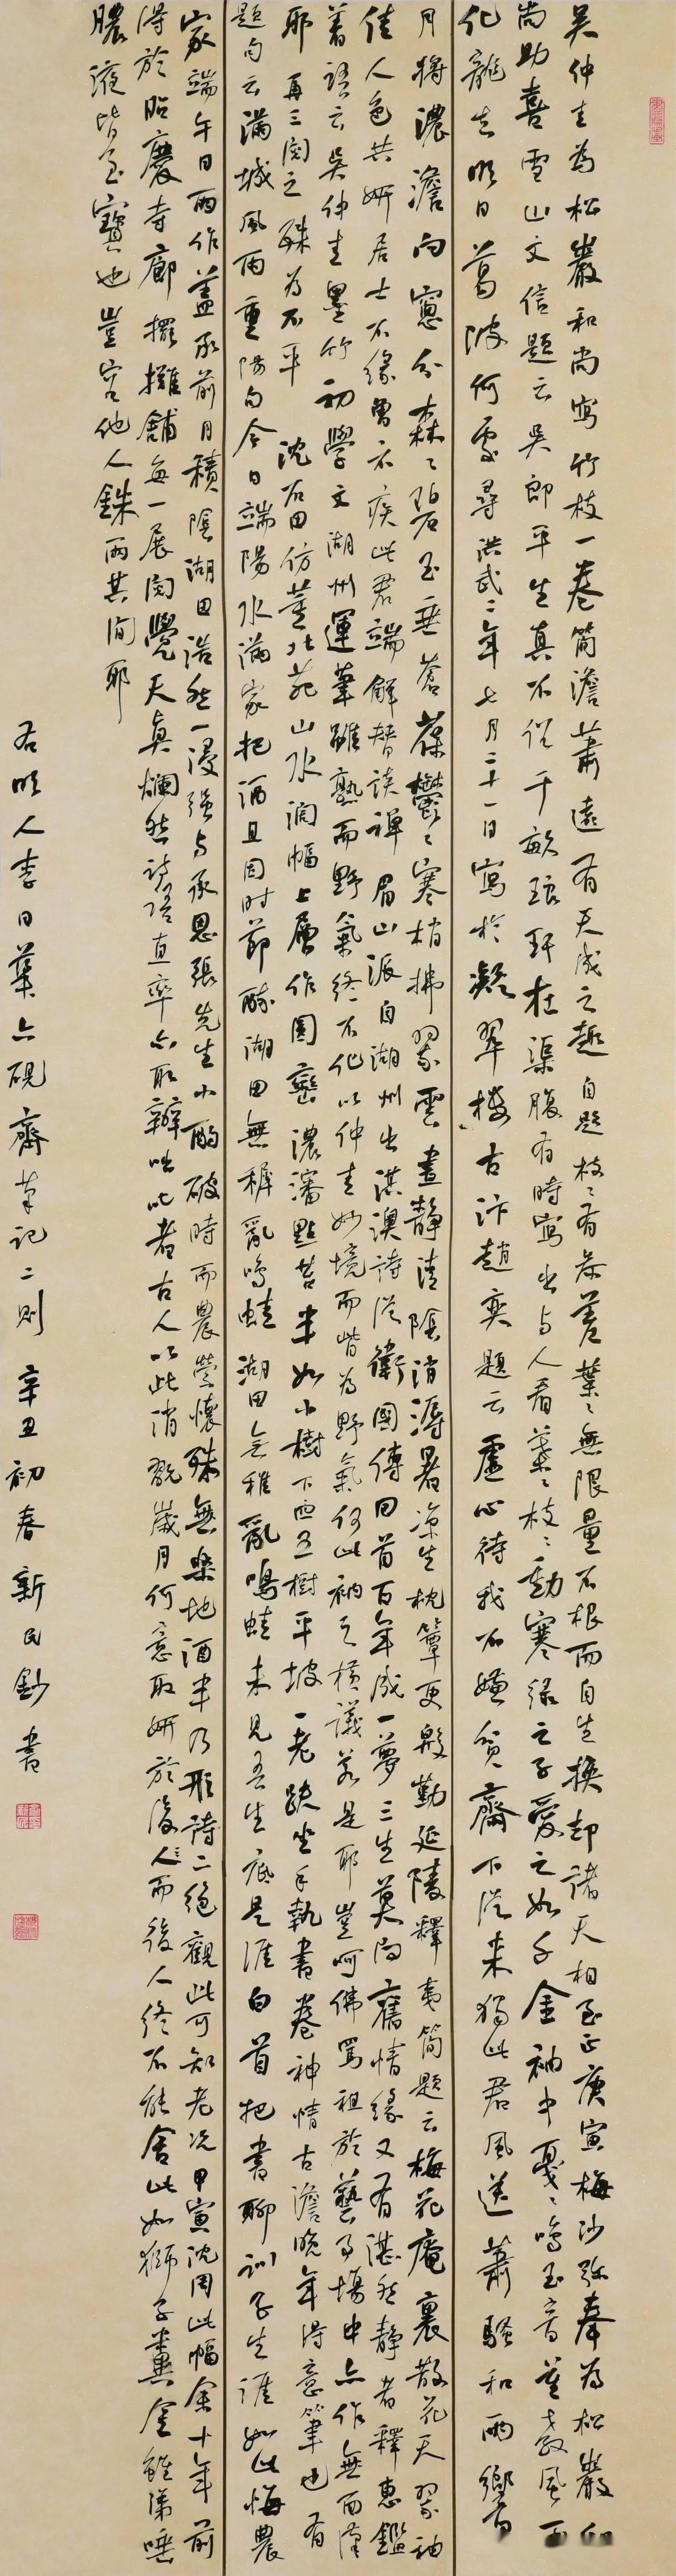 吴仲圭為松巖和尚寫竹枝一卷簡澹蕭遠有天成之趣自題枝〻有參差葉〻無限量不根而自生換却諸天相至正庚寅梅沙弥奉為松巖和
尚助喜雪山文信題云吴郎平生真不俗千畝琅玕在渠腹有時寫出与人看葉〻枝〻動寒緑之子愛之如千金袖中戛〻鳴玉音莫教風雨
化龍去明日葛陂何處尋洪武二年七月二十一日寫於凝翠樓古汴趙奕題云虛心待我不嫌貧齋下從来獨此君風送蕭騷和雨響
月將濃澹向窗分森〻碧玉垂蒼葆鬱〻寒梢拂翠雲晝静清陰消溽暑凉生枕簟更殷勤延陵釋夷簡題云梅花庵裏散花天翠袖
佳人色共妍居士不缘曾示疾此君端解替談禪眉山派自湖州出淇澳詩從衛國傳回首百年成一夢三生莫問舊情緣又有湛然静者釋惠鑑
着語云吴仲圭墨竹初學文湖州運筆雖熟而野氣終不化以仲圭妙境而皆為野氣何此衲之橫議若是耶豈呵佛罵祖於藝事場中亦作無面漢
耶再三閱之殊為不平 沈石田仿董北苑山水濶幅上層作圓巒濃瀋點苔半如小樹下四五樹平坡一老趺坐手執書卷神情古澹晚年得意筆也有
題句云滿城風雨重陽句今日端陽水滿家把酒且因时節醉湖田無稚亂鳴蛙湖田無稚亂鳴蛙未見吾生底是涯白首把書聊訓子生涯如此悔農
家端午日雨作盖承前月積陰湖田浩然一浸强与承恩張先生小酌破時而農營懷殊無樂地酒半乃形詩二絕觀此可知老况甲寅沈周此幅余十年前
得於昭慶寺廊擺攤舖每一展閱覺天真爛然詩語直率亦取辦咄咄者古人以此消翫歲月何意取妍於後人而後人終不能舍此如獅子糞金雖涕唾
膿液皆至寶也豈容他人銖兩其间耶
右明人李日華六硯齋笔記二则 辛丑初春新民鈔書